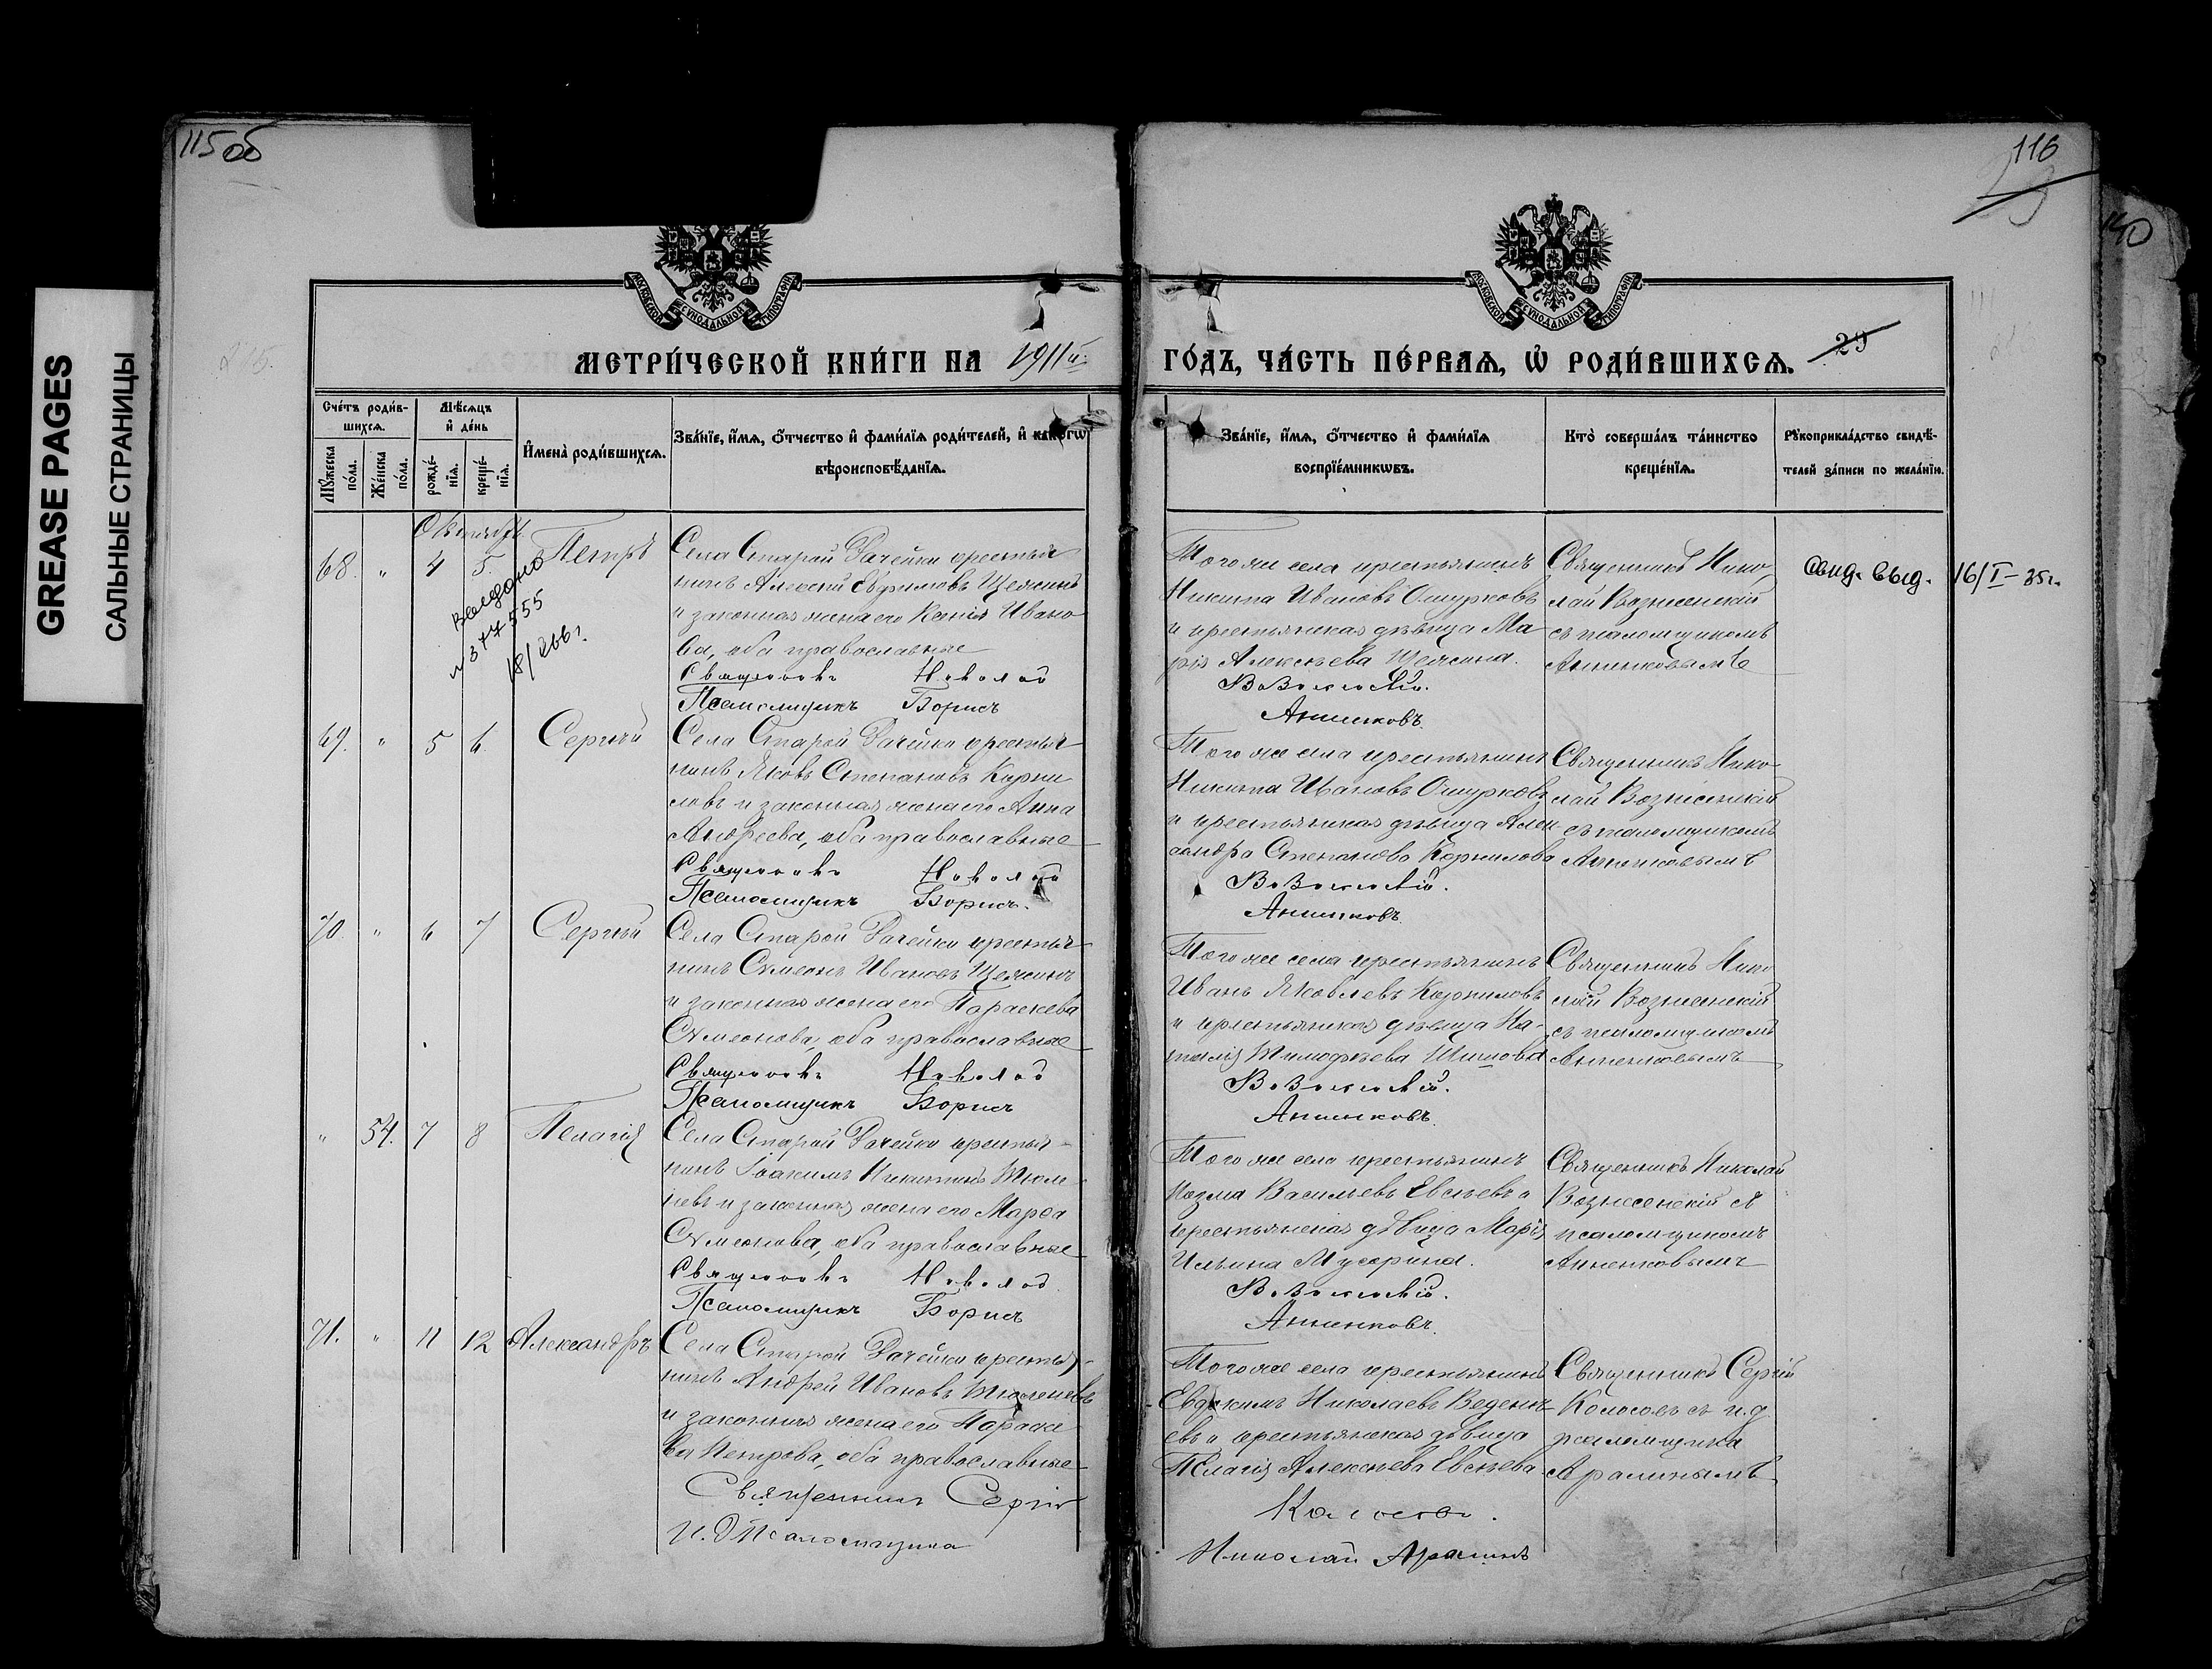 115об
116
29
140
GREASE PAGES
САЛЬНЫЕ СТРАНИЦЫ
МОСКОВСКОЙ СѴНОДАЛЬНОЙ ТИПОГРАФІИ
МОСКОВСКОЙ СѴНОДАЛЬНОЙ ТИПОГРАФІИ
МЕТРИ́ЧЕСКОЙ КНИ́ГИ НА 1911й
ГО́ДЪ, ЧА́СТЬ ПЕ́РВАѦ, Ѡ҆ РОДИ́ВШИХСѦ. 29
Сче́тъ роди́вшихсѧ.
Мꙋ́жеска по́ла.
Же́нска по́ла.
Мѣ́сѧцъ и҆ де́нь
рожде́нїѧ.
креще́нїѧ.
И҆мена̀ роди́вшихсѧ.
Зва́нїе, и҆́мѧ, ѻ҆́тчество и҆ фами́лїѧ роди́телей, и҆ како́гѡ
вѣроисповѣ́данїѧ.
Зва́нїе, и҆́мѧ, ѻ҆́тчество и҆ фами́лїѧ
воспрїе́мникѡвъ.
Кто̀ соверша́лъ та́инство
креще́нїѧ.
Рꙋкоприкла́дство свидѣ́-
телей за́писи по жела́нїю.
Октябрь
68. " 4 5. Петръ
выдано
18/ 266г.
Села Старой Рачейки крестья
нинъ Алексей Ефримовъ Щелкинъ
и законная жена его Ксенія Ивано
ва, оба православные
Священникъ Николай
Псаломщикъ Борисъ
Того же села крестьянинъ
Никита Ивановъ Ошурковъ
и крестьянская дѣвица Ма
рія Алексѣева Щелкина.
Вознесенскій.
Анненковъ.
Священникъ Нико
лай Вознесенскій
съ псаломщикомъ
Анненковымъ
Свид. выд. 16/I–35г.
69. " 5 6 Сергій
Села Старой Рачейки крестья
нинъ Яковъ Степановъ Корни
ловъ и законная жена его Анна
Андреева, оба православные
Священникъ Николай
Псаломщикъ Борисъ.
Того же села крестьянинъ
Никита Ивановъ Ошурковъ
и крестьянская дѣвица Алек
сандра Степанова Корнилова
Вознесенскій.
Анненковъ.
Священникъ Нико
лай Вознесенскій
съ псаломщикомъ
Анненковымъ
70. " 6 7 Сергій
Села Старой Рачейки крестья
нинъ Сѵмеонъ Ивановъ Щелкинъ
и законная жена его Параскева
Сѵмеонова, оба православные
Священникъ Николай
Псаломщикъ Борисъ
Того же села крестьянинъ
Иванъ Яковлевъ Корниловъ
и крестьянская дѣвица На-
талія Тимофеева Шишова
Вознесенскій.
Анненковъ.
Священникъ Нико
лай Вознесенскій
съ псаломщикомъ
Анненковымъ
" 54. 7 8 Пелагія
Села Старой Рачейки крестья-
нинъ Іоакимъ Никитинъ Тюле
невъ и законная жена его Марѳа
Сѵмеонова, оба православные
Священникъ Николай
Псаломщикъ Борисъ
Того же села крестьянинъ
Козма Васильевъ Евсѣевъ и
крестьянская дѣвица Марія
Ильина Мусорина.
Вознесенскій.
Анненковъ.
Священникъ Николай
Вознесенскій съ
псаломщикомъ
Анненковымъ
71. " 11 12 Александръ
Села Старой Рачейки крестья-
нинъ Андрей Ивановъ Тюленевъ
и законная жена его Параске
ва Петрова, оба православные
Священникъ Сергій
И. д Псаломщика
Того же села крестьянинъ
Евдокимъ Николаевъ Веденѣ
евъ и крестьянская дѣвица
Пелагія Алексѣева Евсѣева
Колосовъ.
Николай Аралинъ
Священникъ Сергій
Колосовъ съ и.д
псаломщика
Аралинымъ